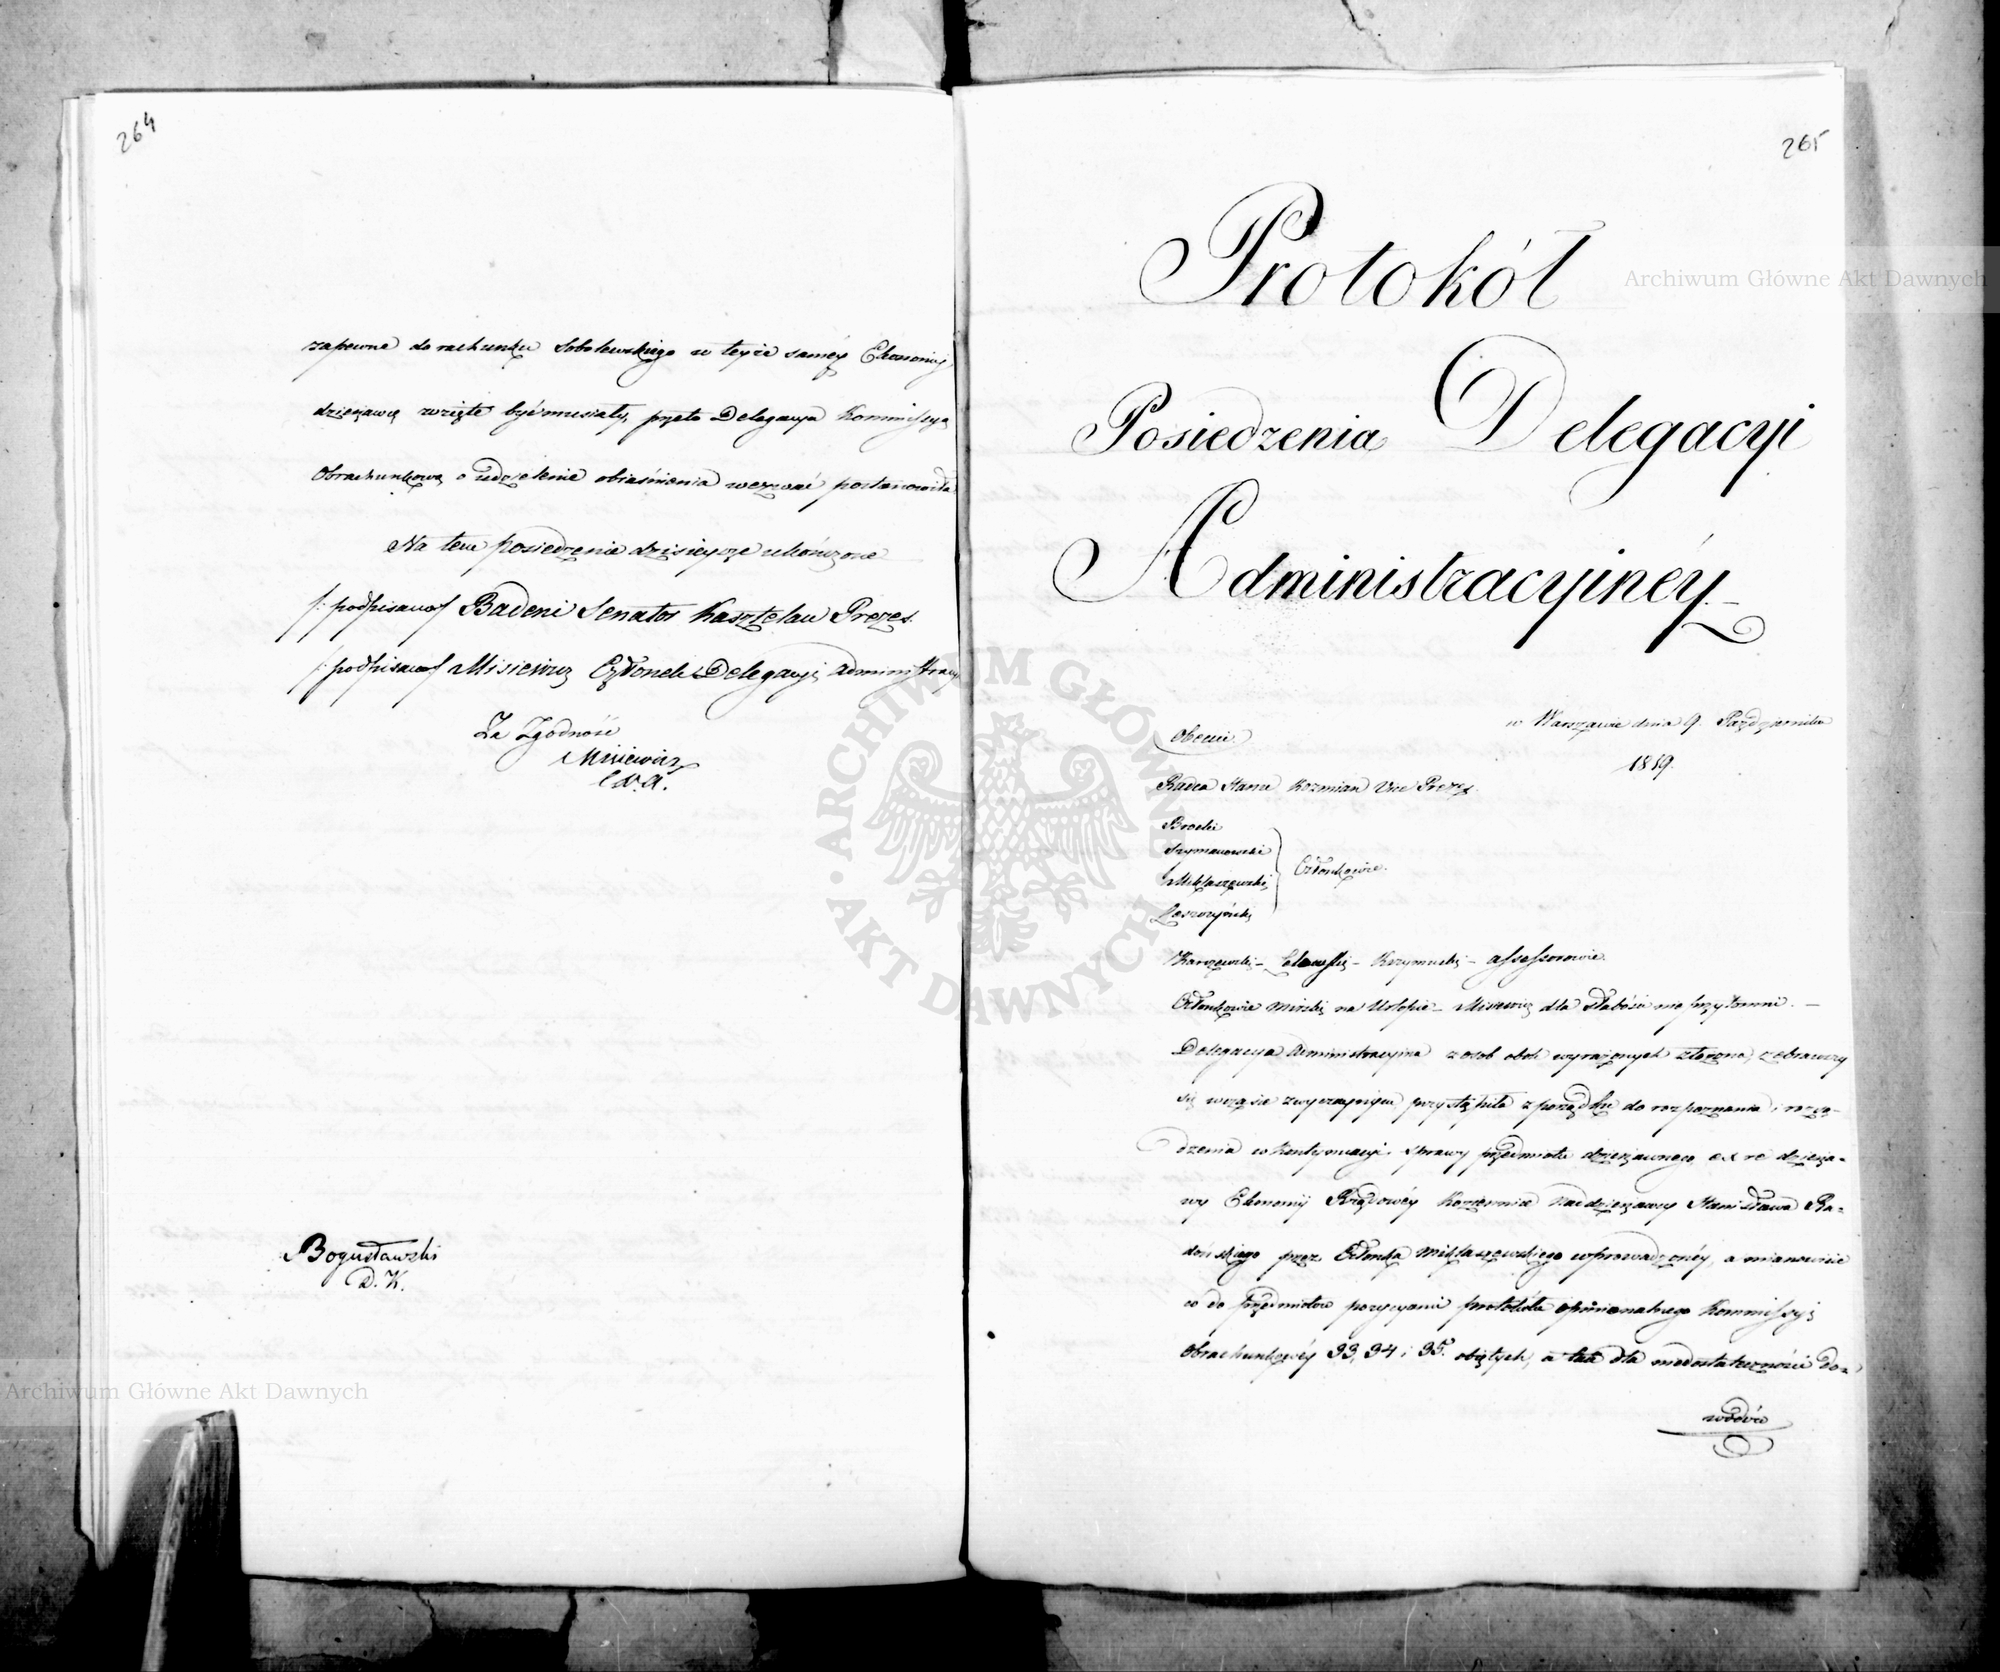 264
zapewne do rachunku Sobolewskiego w teyże saméy Ekonomij
dzierżawcy wzięte być musiały, przeto Delegacya Kommissyą
Obrachunkową o udzielenie obiaśnienia wezwać postanowiła
Na tem posiedzenie dzisieysze ukończone
/: podpisano/ Badeni Senator Kasztelan Prezes.
/: podpisano/ Misiewicz Członek Delegacyi Administracy
Za Zgodność
Misiewicz
C.D.A.
Bogusławski
D. K.
265
Protokół
Posiedzenia Delegacyi
Administracyinéy
w Warszawie dnia 9. Października
1819.
Obecni
Radca Stanu Kozmian Vice Prezes
Brocki
Szymanowski
Miklaszewski
Leszczyński
Członkowie.
Karszewski – – Krzymuski – Assessorowie.
Członkowie Mirski na Urlopie – Misiewicz dla słabości nie przytomni. –
Delegacya Administracyina z osob obok wyrażonych złożona, zebrawszy
się w czasie zwyczaynym przystąpiła z porządku do rozpoznania i rozsą-
dzenia w kontynuacyi sprawy przedmiotu dzierżawnego ex re dzierża-
wy Ekonomij Rządowéy Kozienice naddzierżawcy Stanisława Ra-
dońskiego przez Członka Miklaszewskiego wprowadzonéy, a mianowicie
co do przedmiotow pozycyami protokułu opinionalnego Kommissyi
Obrachunkowéy 33, 34 i 35. obiętych, a tu dla niedostateczności do-
wodów
Archiwum Główne Akt Dawnych
Archiwum Główne Akt Dawnych
ARCHIWUM GŁÓWNE AKT DAWNYCH